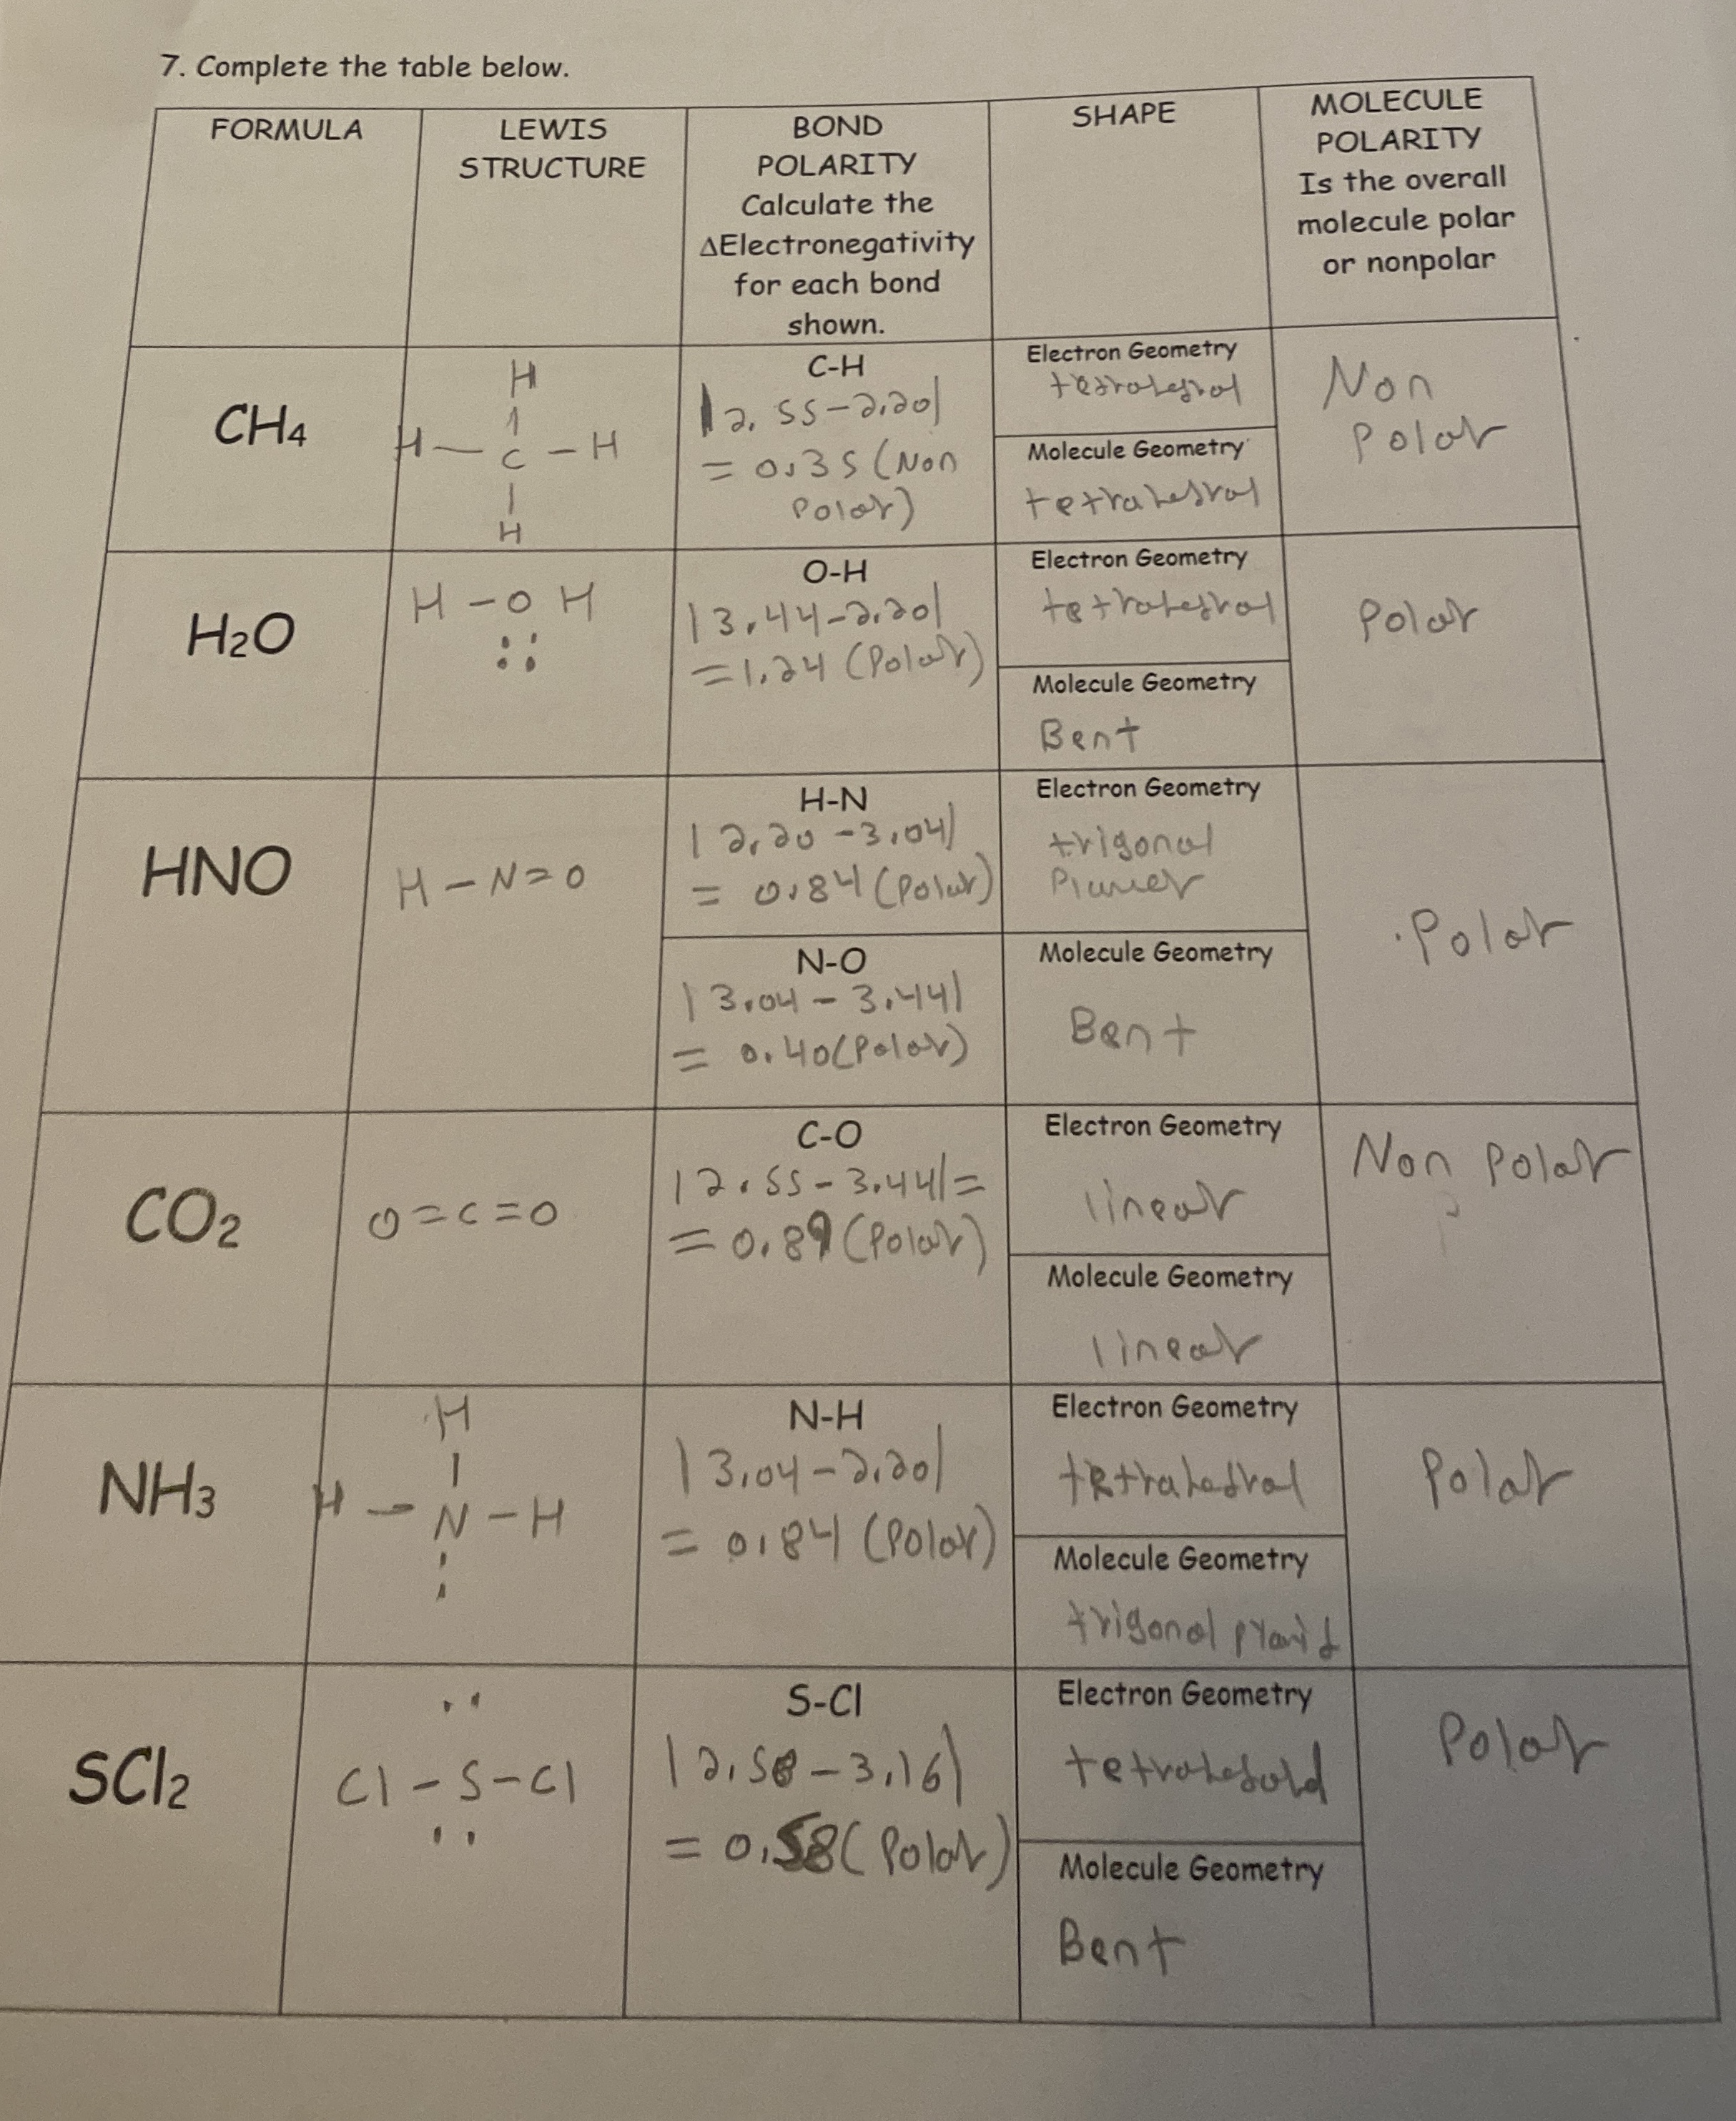 7. Complete the table below.
FORMULA
LEWIS
STRUCTURE
BOND
POLARITY
Calculate the
ΔElectronegativity
for each bond
shown.
SHAPE
MOLECULE
POLARITY
Is the overall
molecule polar
or nonpolar
CH4
H
H — C – H
H
C-H
|2.55-2.20|
= 0.35 (Non
Polar)
Electron Geometry
Molecule Geometry
tetrahedral
Non
Polar
H2O
H – O H
O-H
|3.44-2.20|
=1.24 (Polar)
Electron Geometry
Molecule Geometry
Bent
Polar
HNO
H – N=O
H-N
|2.20 -3.04|
= 0.84 (Polar)
N-O
|3.04 - 3.44|
= 0.40(Polar)
Electron Geometry
trigonal
Molecule Geometry
Bent
Polar
CO2
O=C=O
C-O
|2.55- 3.44|=
= 0.89 (Polar)
Electron Geometry
linear
Molecule Geometry
linear
Non Polar
NH3
H
H – N – H
N-H
|3.04-2.20|
= 0.84 (Polar)
Electron Geometry
tetrahedral
Molecule Geometry
trigonal
Polar
SCl2
Cl – S – Cl
S-Cl
|2.58-3.16|
= 0.58 (Polar)
Electron Geometry
Molecule Geometry
Bent
Polar